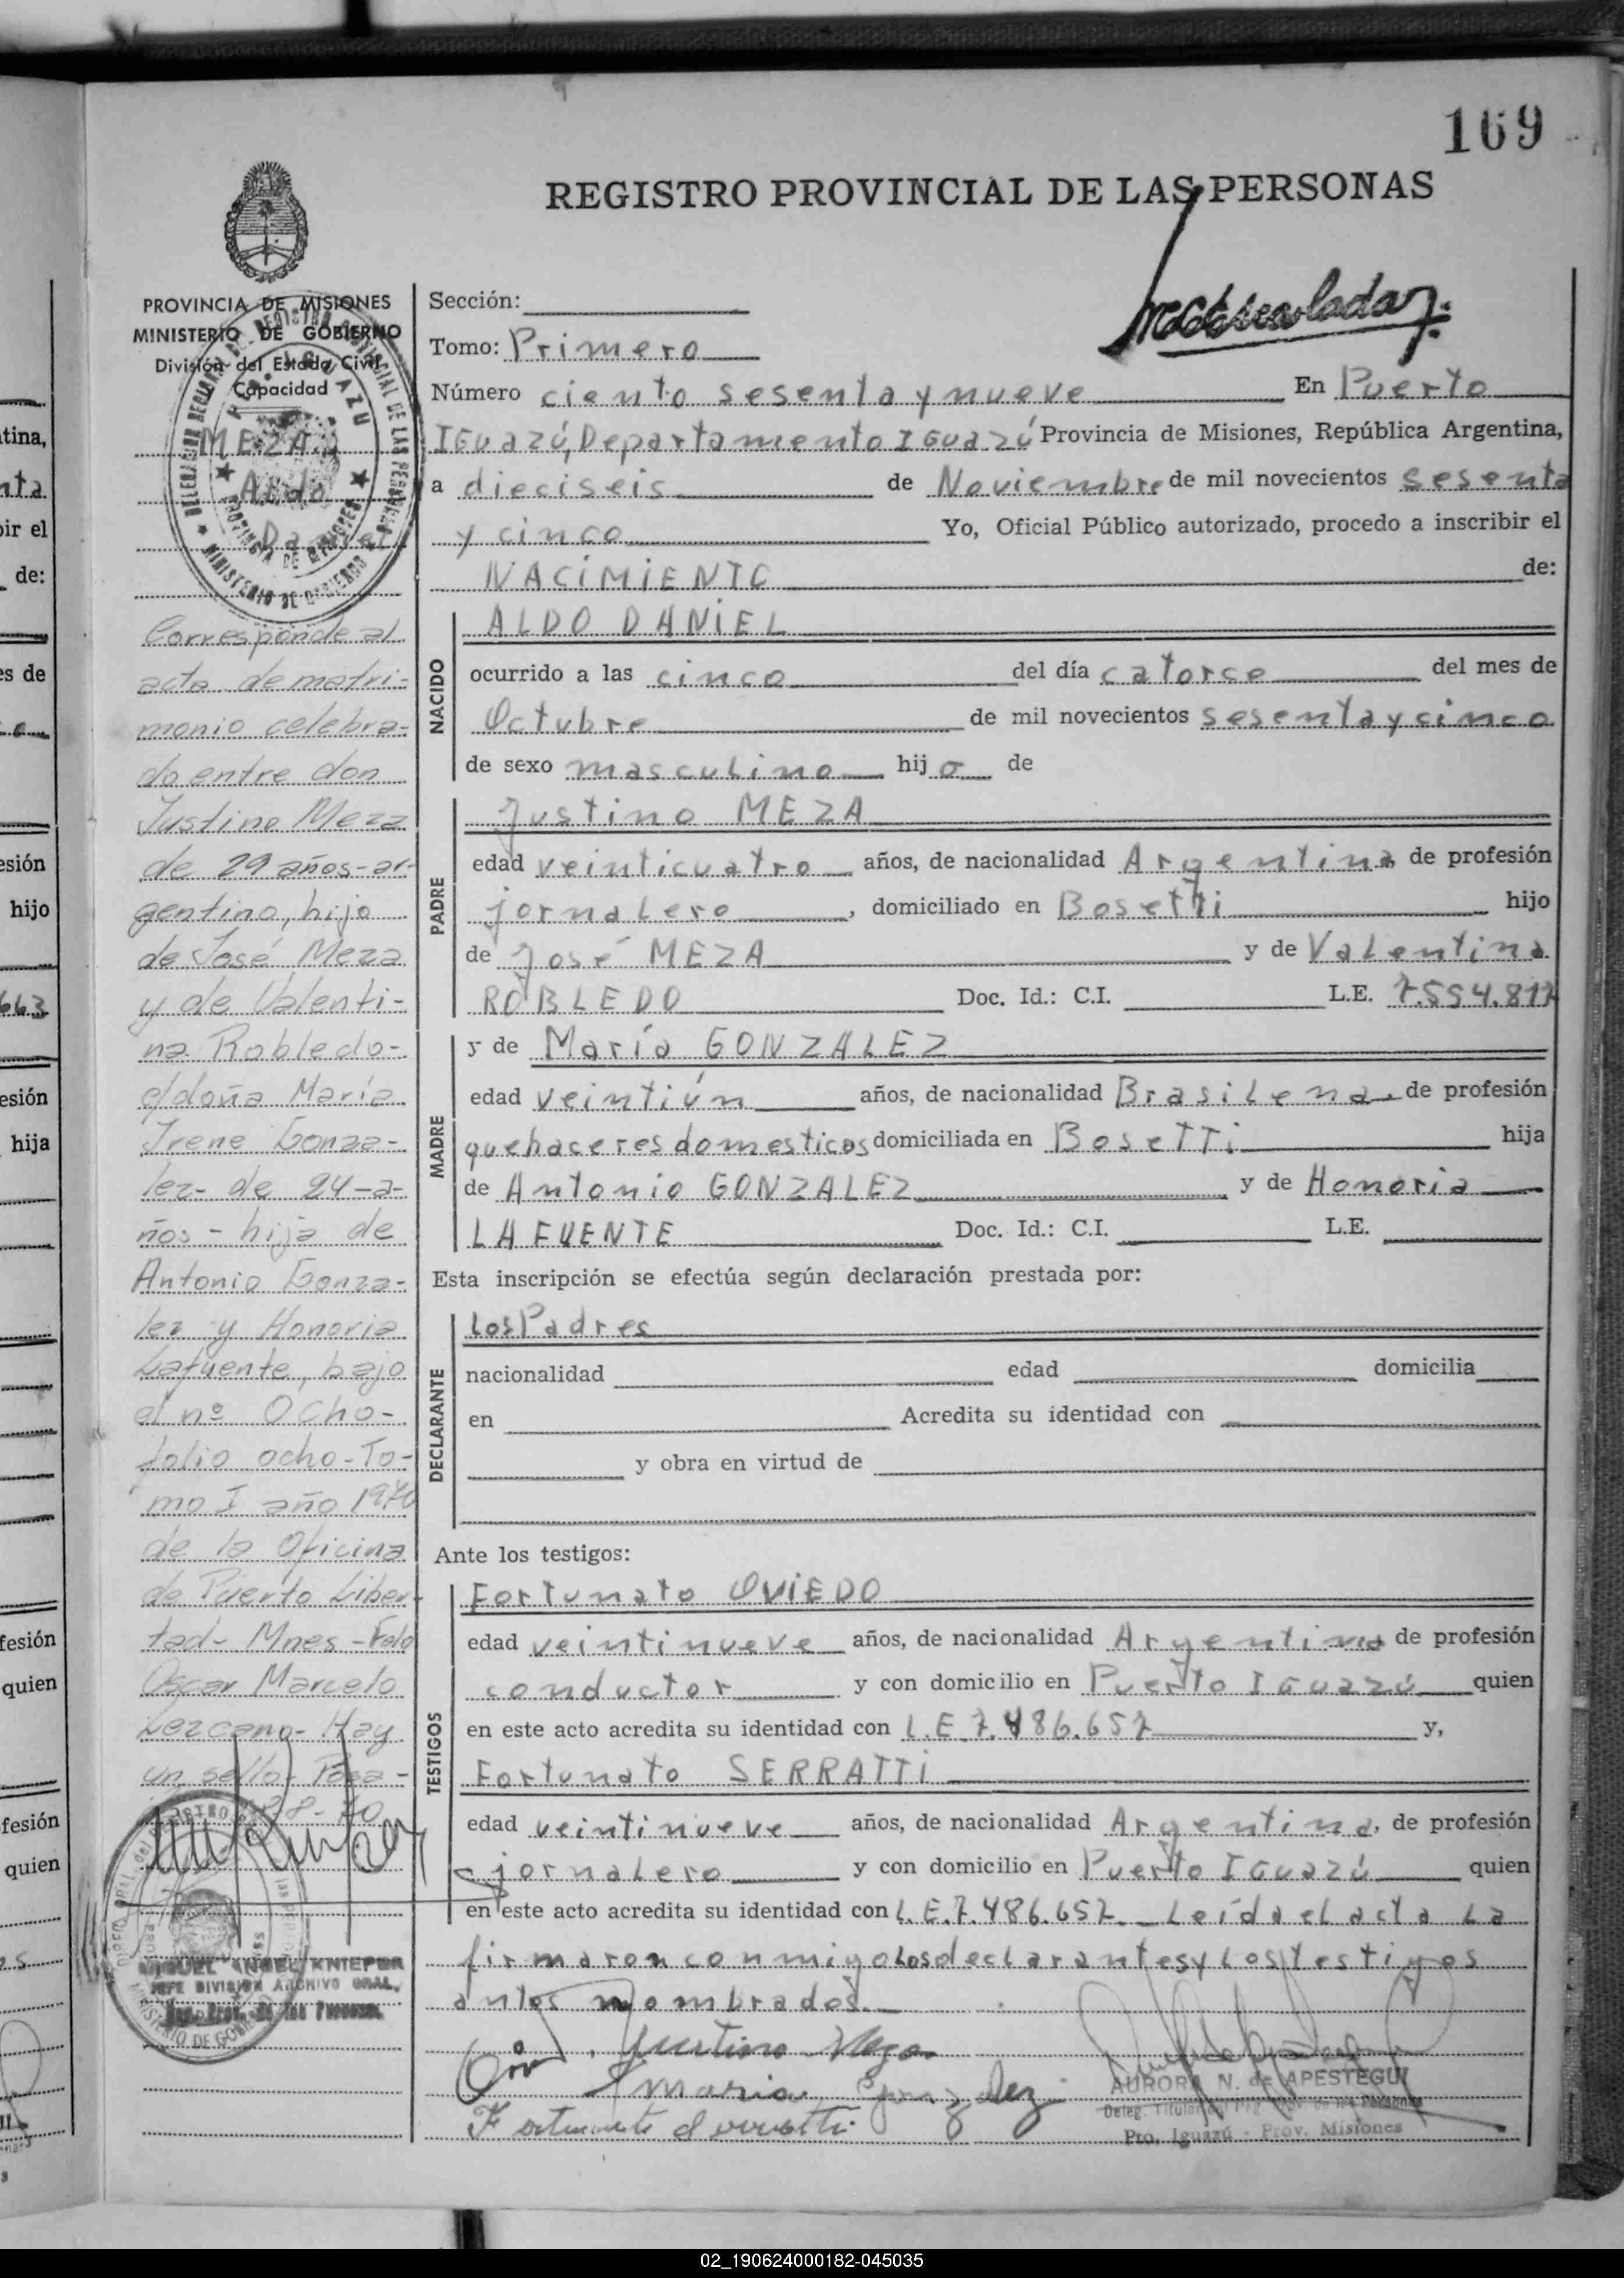 169
REGISTRO PROVINCIAL DE LAS PERSONAS
PROVINCIA DE MISIONES
MINISTERIO DE GOBIERNO
División del Estado Civil
Capacidad
MEZA
Aldo
Daniel
Corresponde al
acta de matri-
monio celebra-
do entre don
Justino Meza
de 29 años-ar-
gentino, hijo
de José Meza
y de Valenti-
na Robledo-
y doña María
Irene Gonza-
lez- de 24-a-
ños - hija de
Antonio Gonza-
lez y Honoria
Lafuente, bajo
el nº Ocho-
folio ocho-To-
mo I año 1970
de la Oficina
de Puerto Liber-
tad- Mnes -Fdo
Oscar Marcelo
Lezcano- Hay
un sello- Posa-
MIGUEL ANGEL KNIEPER
JEFE DIVISION ARCHIVO GRAL.
Sección:
Tomo: Primero
Número ciento sesenta y nueve En Puerto
IGuazú, Departamento IGuazú Provincia de Misiones, República Argentina,
a dieciseis de Noviembre de mil novecientos sesenta
y cinco Yo, Oficial Público autorizado, procedo a inscribir el
NACIMIENTO de:
NACIDO
ALDO DANIEL
ocurrido a las cinco del día catorce del mes de
Octubre de mil novecientos sesenta y cinco
de sexo masculino hijo de
PADRE
Justino MEZA
edad veinticuatro años, de nacionalidad Argentina de profesión
jornalero, domiciliado en Bosetti hijo
de José MEZA y de Valentina
ROBLEDO Doc. Id.: C.I. L.E. 7.554.817
MADRE
y de María GONZALEZ
edad veintiún años, de nacionalidad Brasilena de profesión
quehaceres domesticos domiciliada en Bosetti hija
de Antonio GONZALEZ y de Honoria
LA FUENTE Doc. Id.: C.I. L.E.
Esta inscripción se efectúa según declaración prestada por:
DECLARANTE
Los Padres
nacionalidad edad domicilia
en Acredita su identidad con
y obra en virtud de
Ante los testigos:
TESTIGOS
Fortunato OVIEDO
edad veintinueve años, de nacionalidad Argentina de profesión
conductor y con domicilio en Puerto IGuazú quien
en este acto acredita su identidad con L.E.7.486.657 y,
Fortunato SERRATTI
edad veintinueve años, de nacionalidad Argentina, de profesión
jornalero y con domicilio en Puerto IGuazú quien
en este acto acredita su identidad con L.E.7.486.657. Leída el acta La
firmaron conmigo Los declarantes y Los testigos
antes nombrados.
Justino Meza
Maria Gonzalez
AURORA N. de APESTEGUI
Pto. Iguazú - Prov. Misiones
02_190624000182-045035